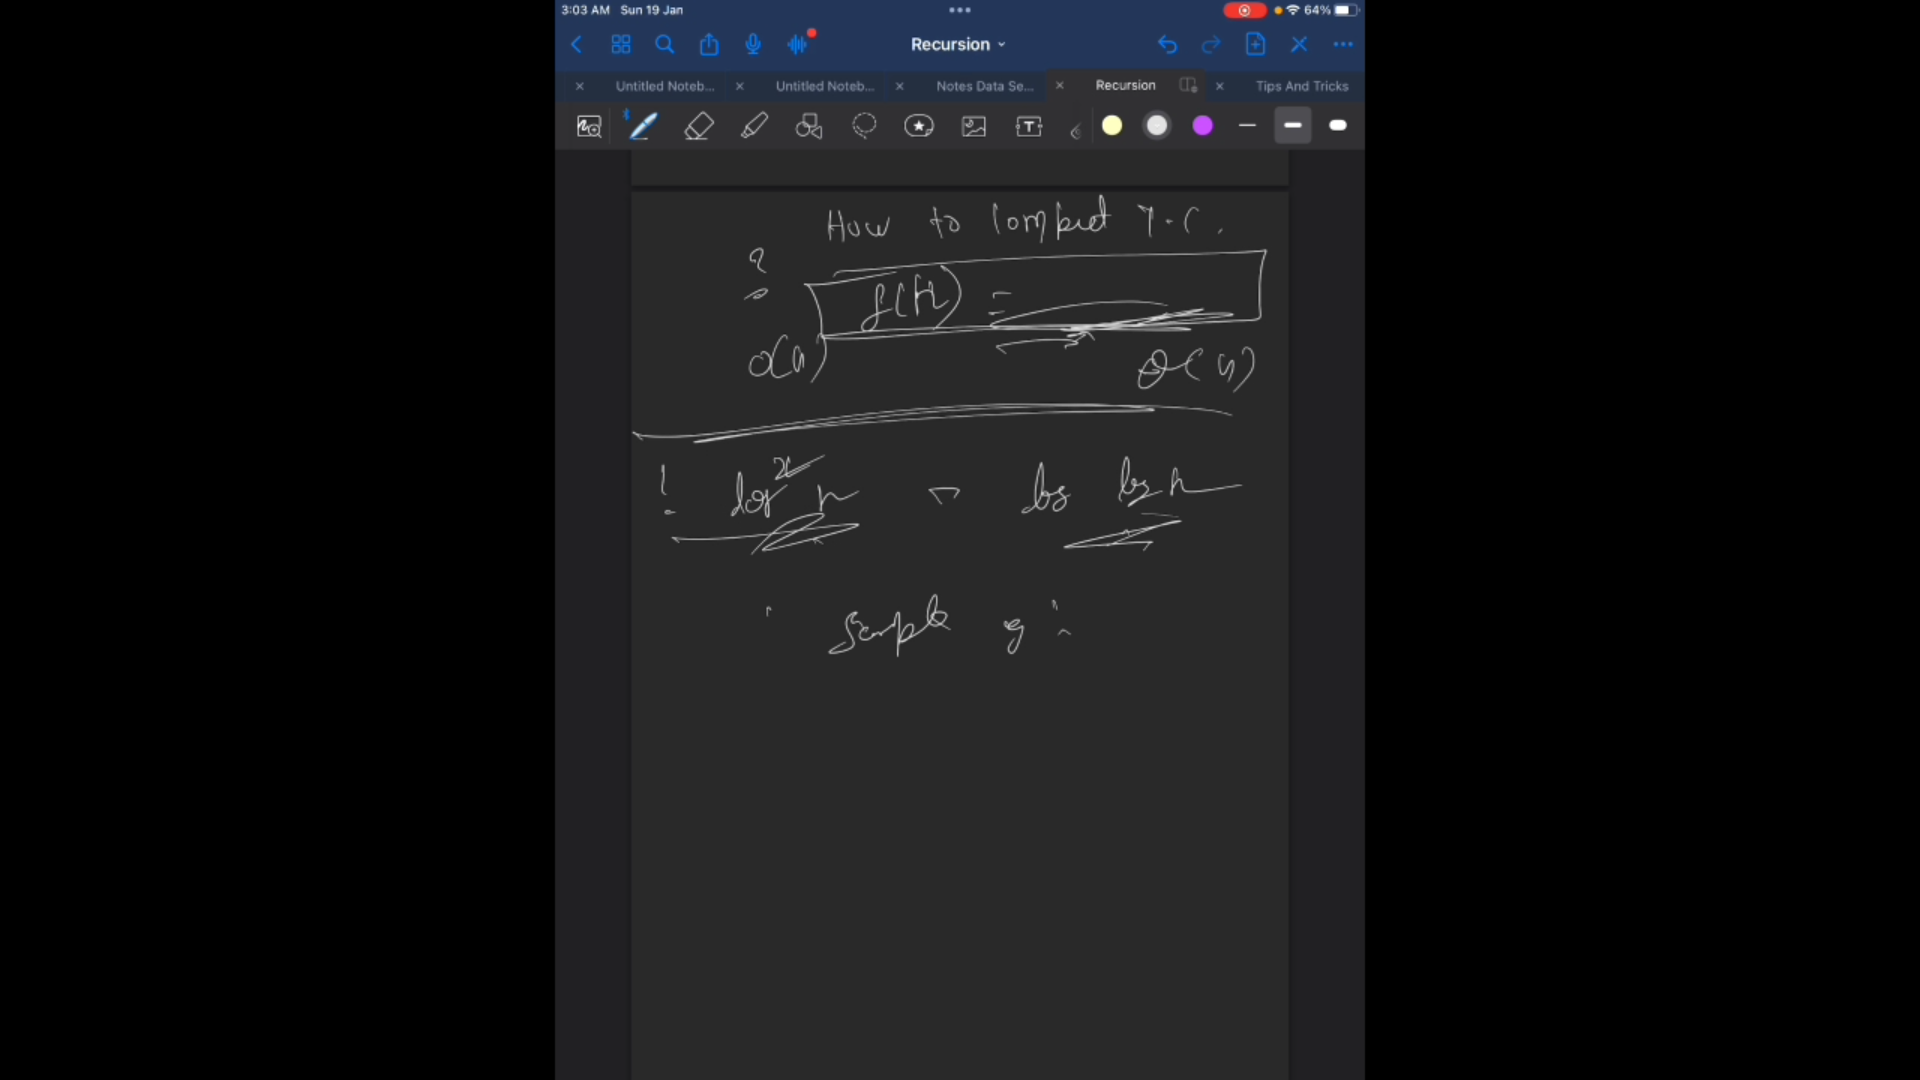 3:03 AM Sun 19 Jan 64%
Recursion
Untitled Noteb... Untitled Noteb... Notes Data Se... Recursion Tips And Tricks
How to Comput T.C.
?
f(n) =
O(n) θ(n)
! log² n log log n
Sample